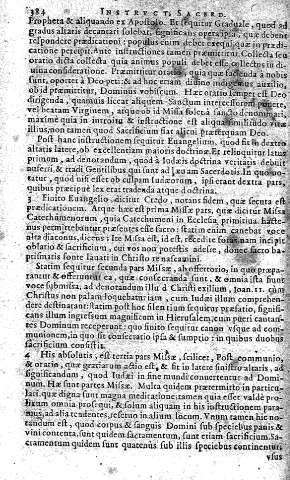 384 INSTRUCT. SACERD.
Propheta & aliquando ex Apostolo. Et sequitur Graduale, quod ad
gradus altaris decantari solebat, significans opera ipsa, quæ debent
respondere prædicationi; populus enim debet exequi, quæ in prædi-
catione peregit. Post instructionem sequitur Collecta seu
oratio dicta collecta quia animus populi debet esse collectus in di-
vina consideratione. Præmittitur oratio, quia quæ facienda à nobis
sunt, oportet à Deo peti, & ad hoc eius auxilio,
ob id præmittitur, Dominus vobiscum. Hæc oratio semper est Deo
dirigenda, quamuis liceat aliquem Sanctum intercessorem ponere,
vel beatam Virginem, atque ob id Missa solet à sanctis denominari,
maximè quia in introitu & instructione est aliquando
illius, non tamen quod Sacrificium fiat alicui præterquam Deo.
Post hanc instructionem sequitur Euangelium, quod fit in dextro
altaris latere, ob excellentiam maioris doctrinæ. Et reliquitur latus
primum, ad denotandum, quod à Iudæis doctrina veritatis debuit
auferri & tradi Gentilibus qui sunt ad Sacerdotis. In quo no-
tatur, quod ipsi esset ob culpam Iudæorum, ipsi erant dextra pars,
quibus præcipuè lex erat tradenda atque doctrina.
3 Finito Euangelio dicitur Credo, notans fidem, quæ secuta est
prædicationem. Atque hæc est prima Missæ pars, quæ dicitur Missa
Catechumenorum, quia Catechumeni in Ecclesia primitiua, hacte-
nus permittebantur præsentes esse sacro: statim enim canebat voce
alta diaconus, licens: Ite Missa est, id est, recedite foras, nam incipit
oblatio & sacrificium, cui vos non potestis adesse, donec sacro ba-
ptismatis fonte lauati in Christo renascamini.
Statim sequitur secunda pars Missæ, ab offertorio, in quo præpa-
rantur & offeruntur ea, quæ consecranda sunt. & omnia ista sunt
voce submissa, ad denotandum illud Christi exilium, Ioan. 11. cùm
Christus non palam loquebatur iam, cum Iudæi illum comprehen-
dere destinarant: statim post hoc silentium sequitur præfatio, signifi-
cans illum ingressum magnificum in Hierusalem, cum pueri cantan-
tes Dominum receperunt: quo finito sequitur canon usque ad com-
munionem, in quo fit consecratio ipsa & sumptio: in quibus duobus
sacrificium consistit.
4 His absolutis, est tertia pars Missæ, scilicet, Post communio,
& oratio, quæ gratiarum actio est, & fit in latere sinistro altaris, ad
significandum, quod Iudæi in fine mundi conuertentur ad Domi-
num. Hæ sunt partes Missæ. Multa quidem prætermitto in particu-
lari, quæ digna sunt magna meditatione, tamen quia esset valde pro-
lixum omnia prosequi, & solùm aliquam in his instructionem para-
mus, ad alia tendentes, reseruo in alium locum. Vnum tamen hic no-
tandum est, quod corpus & sanguis Domini sub speciebus panis &
vini contenta, sunt quidem sacramentum, sunt etiam sacrificium. Sa-
cramentum quidem sunt quatenus sub illis speciebus continentur,
vsus